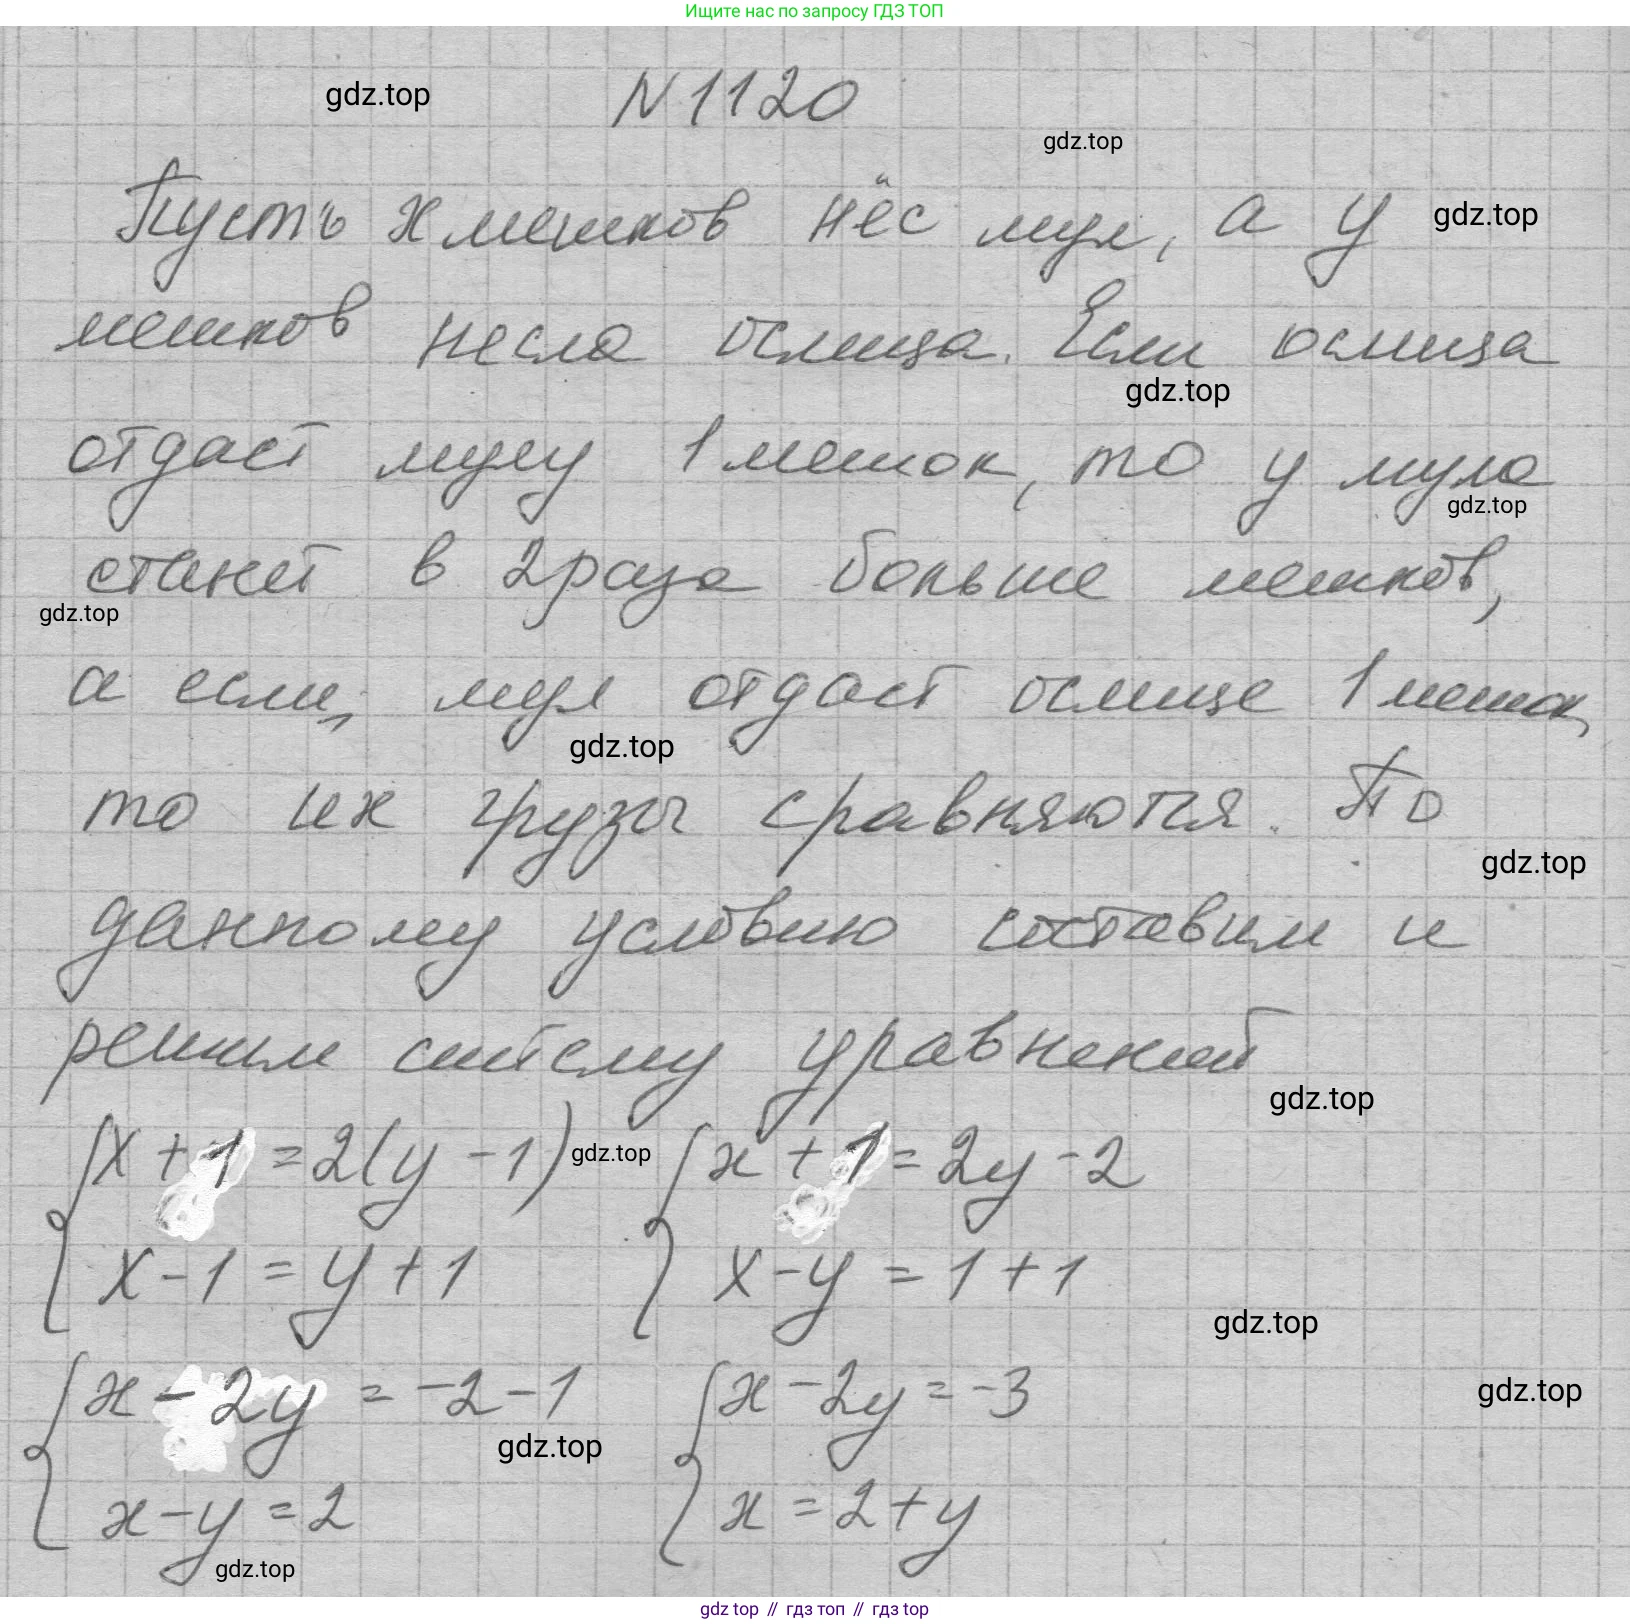 Ищите нас по запросу ГДЗ ТОП
gdz.top
N 1120
gdz.top
Пусть x мешков нёс мул, а y
gdz.top
мешков несла ослица. Если ослица
gdz.top
отдаст мулу 1 мешок, то у мула
gdz.top
станет в 2 раза больше мешков,
gdz.top
а если, мул отдаст ослице 1 мешок,
gdz.top
то их грузы сравняются. По
gdz.top
данному условию составим и
решим систему уравнений
gdz.top
{ x + 1 = 2(y - 1) gdz.top { x + 1 = 2y - 2
x - 1 = y + 1 x - y = 1 + 1
gdz.top
{ x - 2y = -2 - 1 { x - 2y = -3
gdz.top
gdz.top
x - y = 2 x = 2 + y
gdz.top
gdz top // гдз топ // гдз top